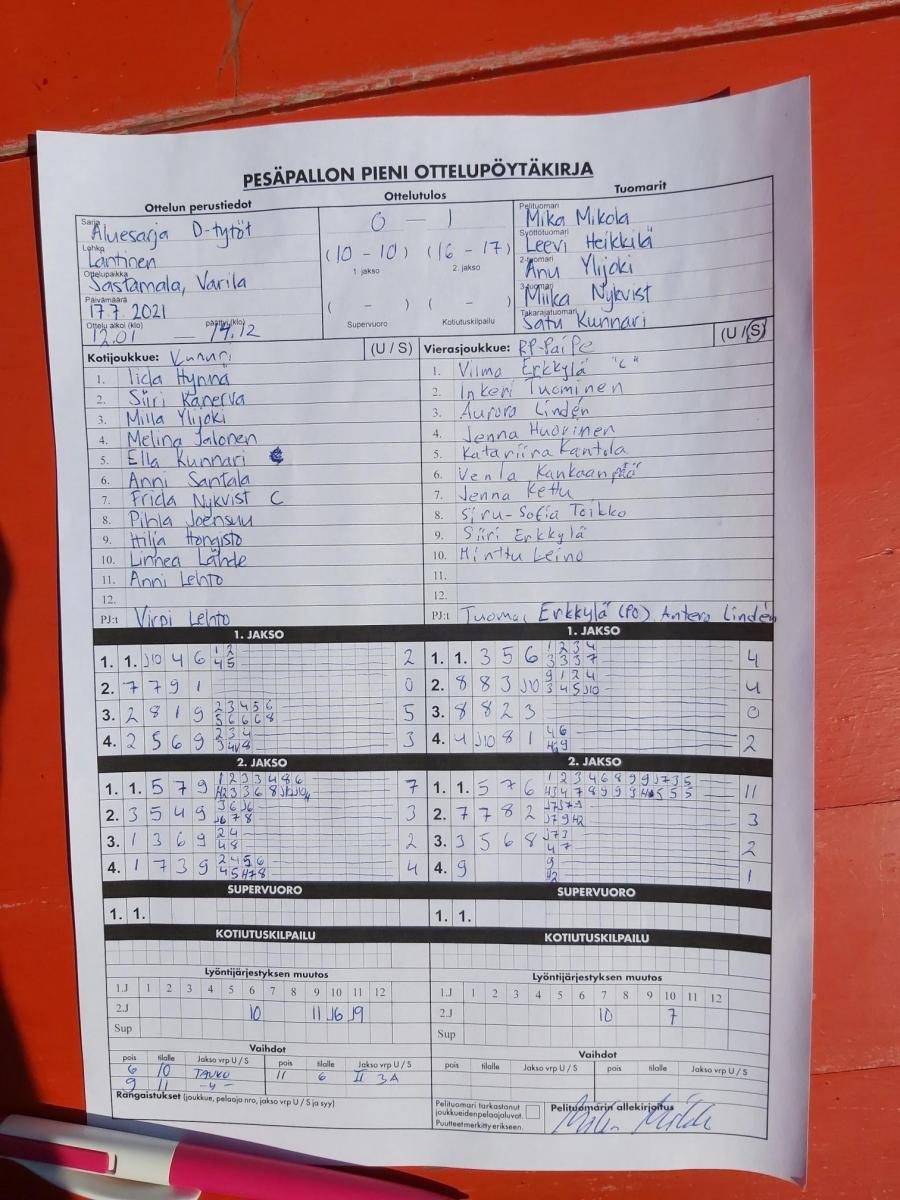 PESÄPALLON PIENI OTTELUPÖYTÄKIRJA
Ottelun perustiedot
Ottelutulos
Tuomarit
Sarja
Aluesarja D-tytöt
Lohko
Läntinen
Ottelupaikka
Sastamala, Varila
Päivämäärä
17.7. 2021
Ottelu alkoi (klo) päättyi (klo)
12.01 — 14.12
0 — 1
(10 - 10) (16 - 17)
1. jakso 2. jakso
( - ) ( - )
Supervuoro Kotiutuskilpailu
Pelituomari
Mika Mikola
Syöttötuomari
Leevi Heikkilä
2-tuomari
Anu Ylijoki
3-tuomari
Miika Nykvist
Takarajatuomari
Satu Kunnari
Kotijoukkue: (U / S)
1. Iida Hynnä
2. Siiri Kanerva
3. Milla Ylijoki
4. Melina Jalonen
5. Ella Kunnari
6. Anni Santala
7. Frida Nykvist C
8. Pihla Joensuu
9. Hilja Hongisto
10. Linnea Lähde
11. Anni Lehto
12.
PJ:t Virpi Lehto
Vierasjoukkue: RP-Paipe (U / S)
1. Vilma Erkkylä "C"
2. Inkeri Tuominen
3. Aurora Lindén
4. Jenna Huorinen
5. Katariina Kantola
6. Venla Kankaanpää
7. Jenna Kettu
8. Siru-Sofia Toikko
9. Siiri Erkkylä
10. Minttu Leino
11.
12.
PJ:t Tuomas Erkkylä (PO), Antero Lindén
1. JAKSO
1. 1. J10 4 6 2
2. 7 7 9 1 0
3. 2 8 1 9 2 3 4 5 6 5
5 6 6 6 8
4. 2 5 6 9 2 3 4 3
1. JAKSO
1. 1. 3 5 6 1 2 3 4 4
3 3 3 7
2. 8 8 3 J10 9 1 2 4 4
3 4 5 J10
3. 8 8 2 3 0
4. 4 J10 8 1 4 6 2
2. JAKSO
1. 1. 5 7 9 1 2 3 3 4 8 6 7
2. 3 5 4 9 3
3. 1 3 6 9 2 4 2
4 8
4. 1 7 3 9 2 4 5 6 4
2. JAKSO
1. 1. 5 7 6 1 2 3 4 6 8 9 9 J7 3 5 11
2. 7 7 8 2 3
3. 3 5 6 8 J7 3 2
4 7
4. 9 9 1
SUPERVUORO
1. 1.
SUPERVUORO
1. 1.
KOTIUTUSKILPAILU
KOTIUTUSKILPAILU
Lyöntijärjestyksen muutos
1.J 1 2 3 4 5 6 7 8 9 10 11 12
2.J 10 11 J6 J9
Sup
Lyöntijärjestyksen muutos
1.J 1 2 3 4 5 6 7 8 9 10 11 12
2.J 10 7
Sup
Vaihdot
pois tilalle Jakso vrp U / S pois tilalle Jakso vrp U / S
6 10 TAUKO 11 6 II 3A
9 11 -"-
Vaihdot
pois tilalle Jakso vrp U / S pois tilalle Jakso vrp U / S
Rangaistukset (joukkue, pelaaja nro, jakso vrp U / S ja syy)
Pelituomari tarkastanut
joukkueiden pelaajaluvat.
Puutteet merkitty erikseen.
Pelituomarin allekirjoitus